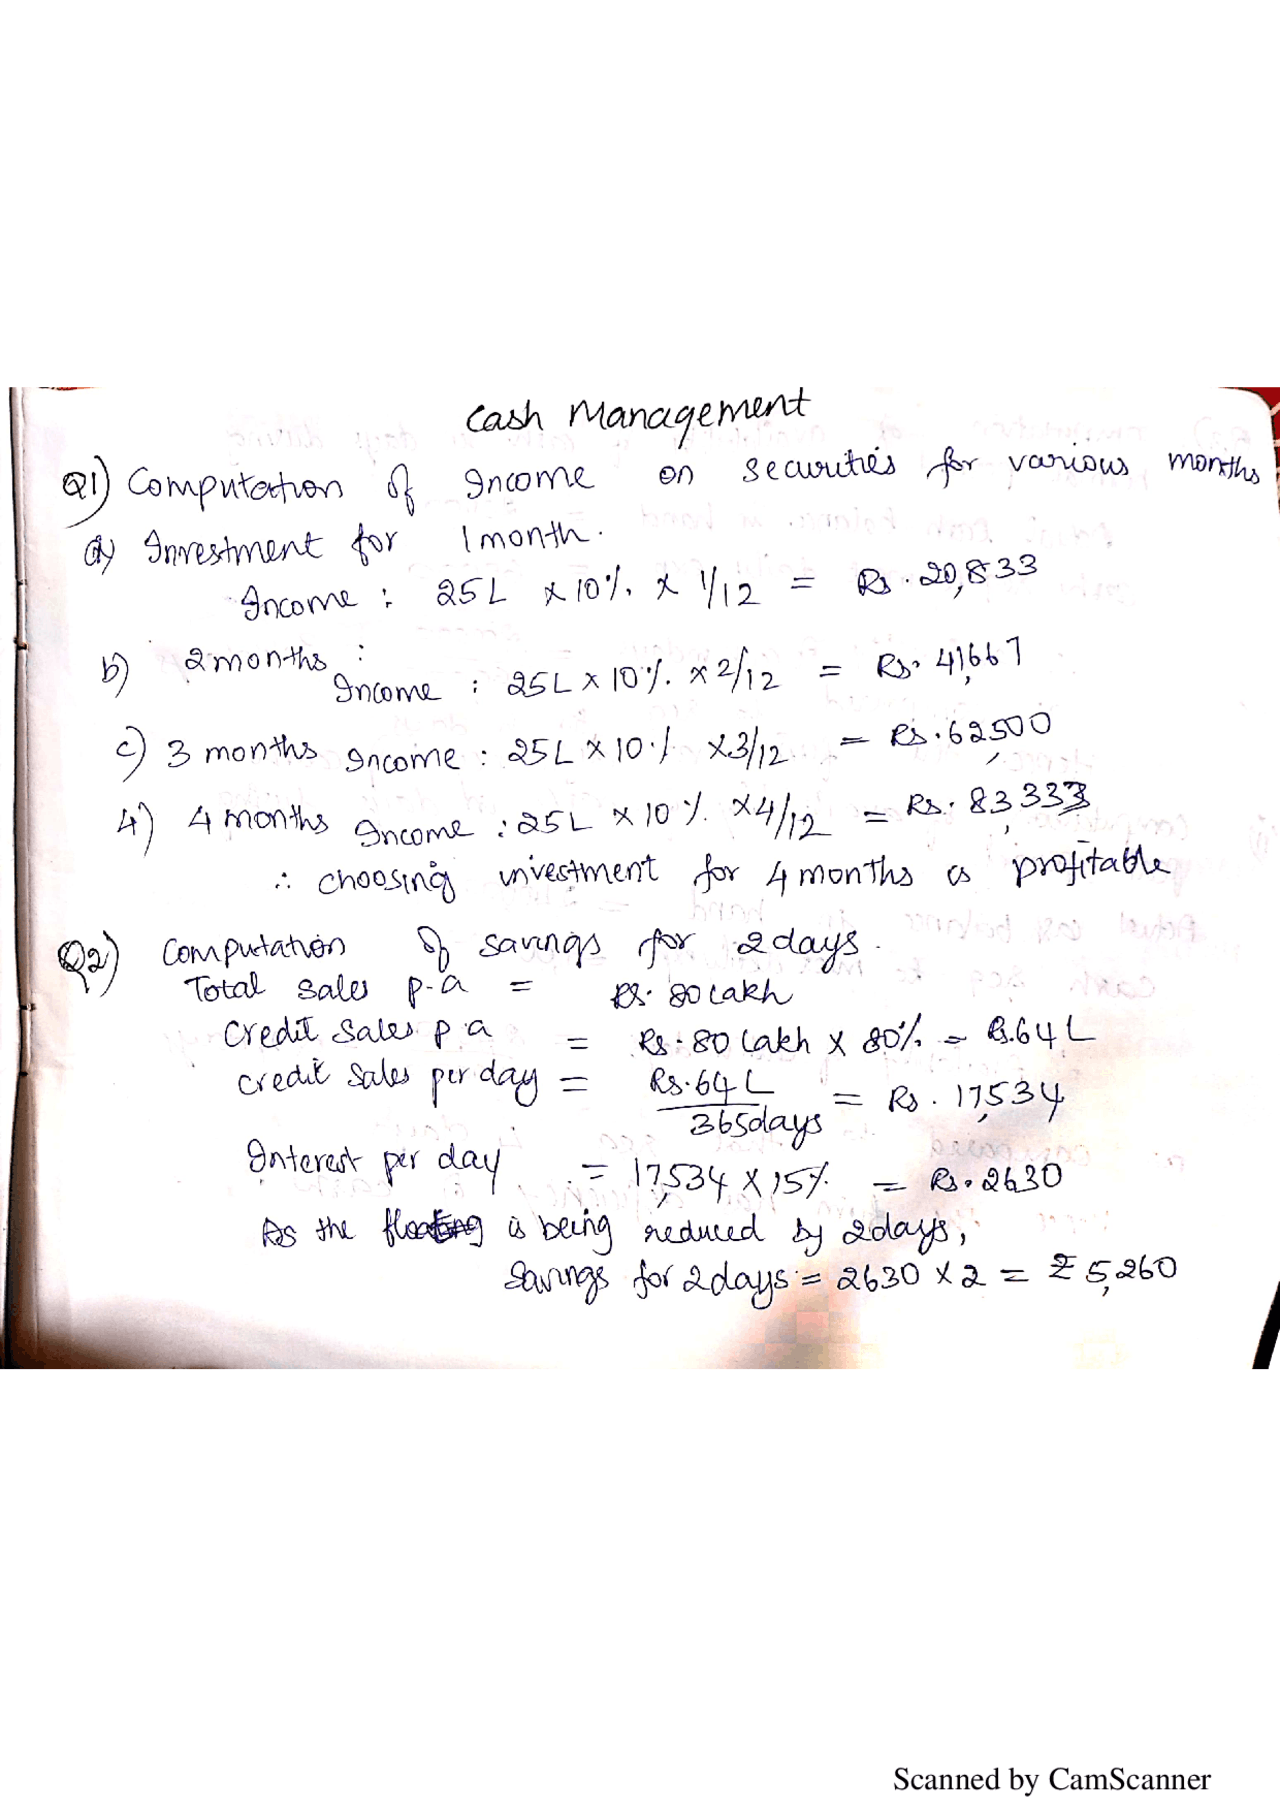 Cash Management
Q1) Computation of Income on securities for various months
a) Investment for 1 month.
Income : 25L × 10% × 1/12 = Rs. 20,833
b) 2 months :
Income : 25L × 10% × 2/12 = Rs. 41,667
c) 3 months Income : 25L × 10% × 3/12 = Rs. 62,500
4) 4 months Income : 25L × 10% × 4/12 = Rs. 83,333
∴ choosing investment for 4 months is profitable
Q2) Computation of savings for 2 days.
Total sales p.a = Rs. 80 Lakh
Credit Sales p.a = Rs. 80 Lakh × 80% = Rs. 64 L
Credit Sales per day = Rs. 64 L / 365 days = Rs. 17,534
Interest per day = 17,534 × 15% = Rs. 2630
As the floating is being reduced by 2 days,
Savings for 2 days = 2630 × 2 = ₹ 5,260
Scanned by CamScanner